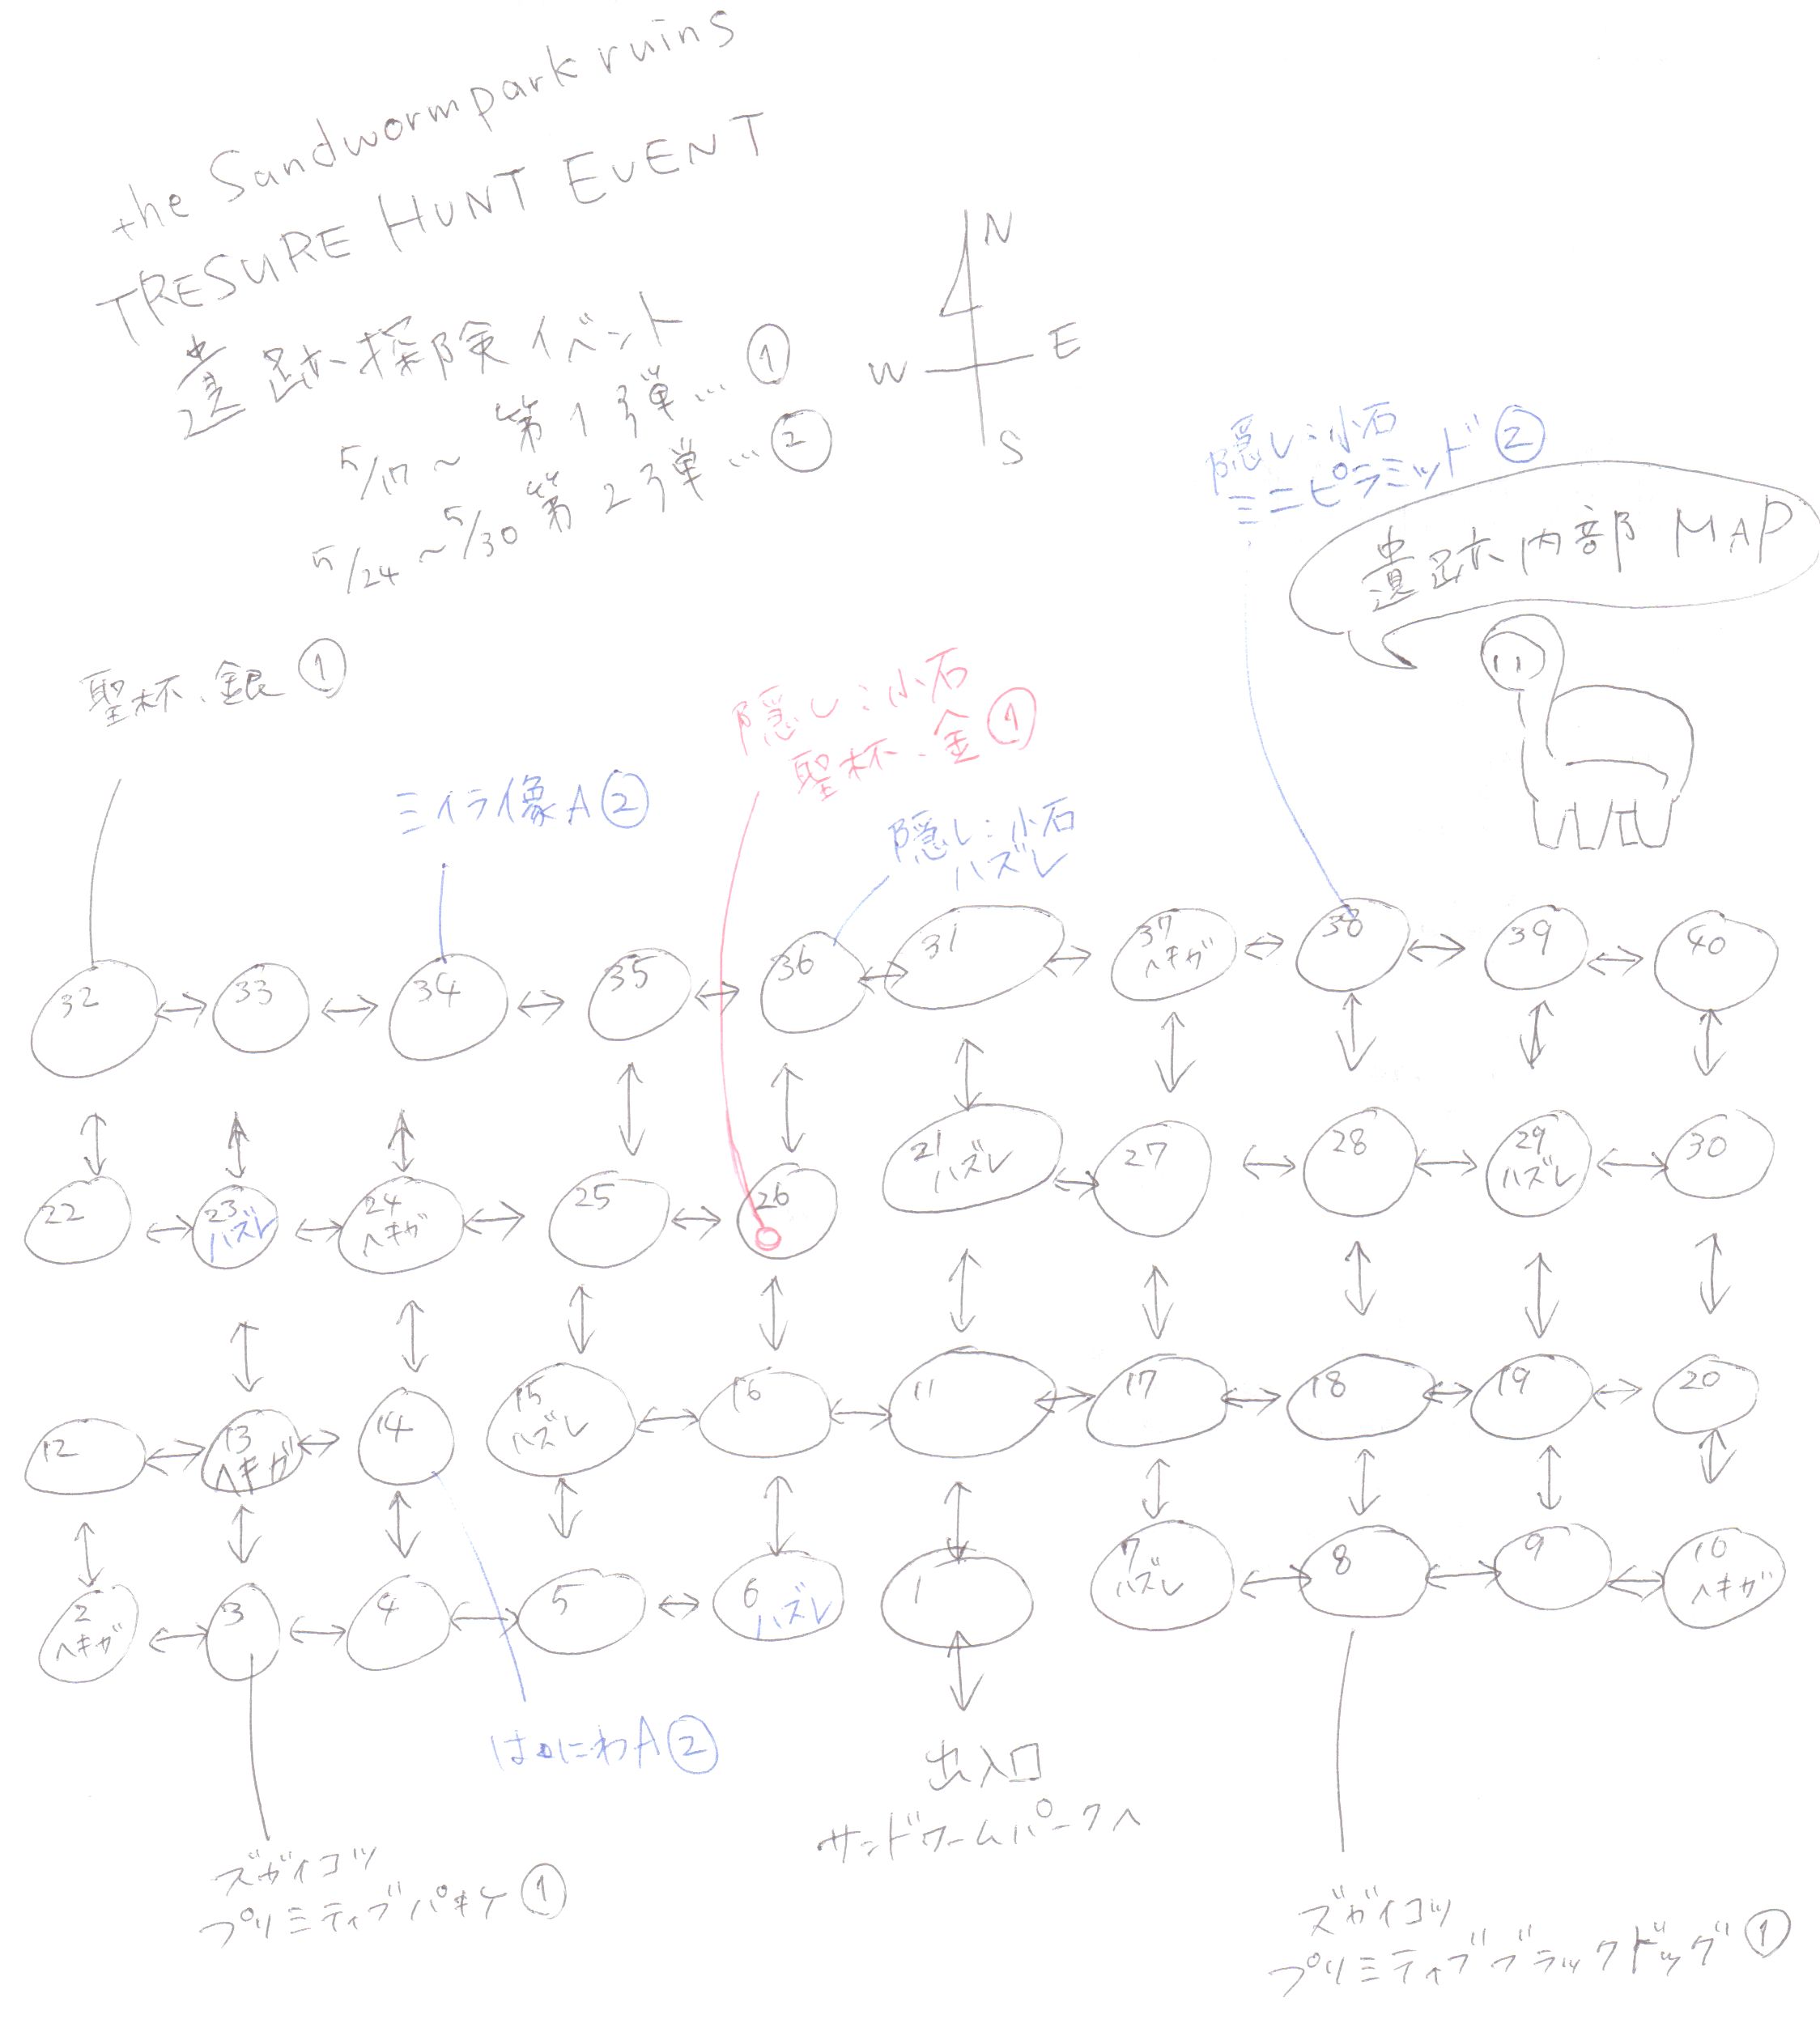 the Sandwormpark ruins
TRESURE HUNT EVENT
遺跡探険イベント
5/17～ 第1弾…①
5/24～5/30 第2弾…②
N
W E
S
隠し:小石
ミニピラミッド②
遺跡内部MAP
聖杯、銀①
ミイラ像A②
隠し:小石
聖杯、金①
隠し:小石
ハズレ
32 33 34 35 36 31 37 38 39 40
ヘキガ
22 23 24 25 26 21 27 28 29 30
ハズレ ヘキガ ハズレ ハズレ
12 13 14 15 16 11 17 18 19 20
ヘキガ ハズレ
2 3 4 5 6 1 7 8 9 10
ヘキガ ハズレ ハズレ ヘキガ
はにわA②
出入口
サンドワームパークへ
ズガイコツ
プリミティブパキケ①
ズガイコツ
プリミティブブラックドッグ①